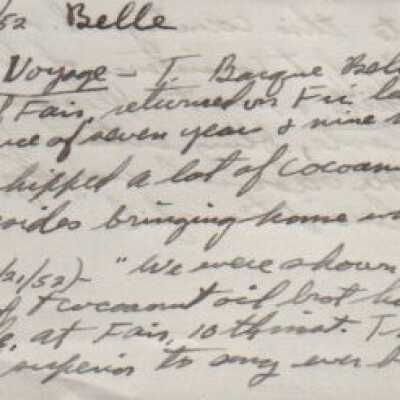 /52 Belle
Voyage - T. Barque Bel
Fair, returned on Fri la
ce of seven years & nine m
hipped a lot of cocoanu
esides bringing home
/21/52) - "We were shown
of cocoanut oil brot h
at Fair, 10 thinst. T
superior to any ever b